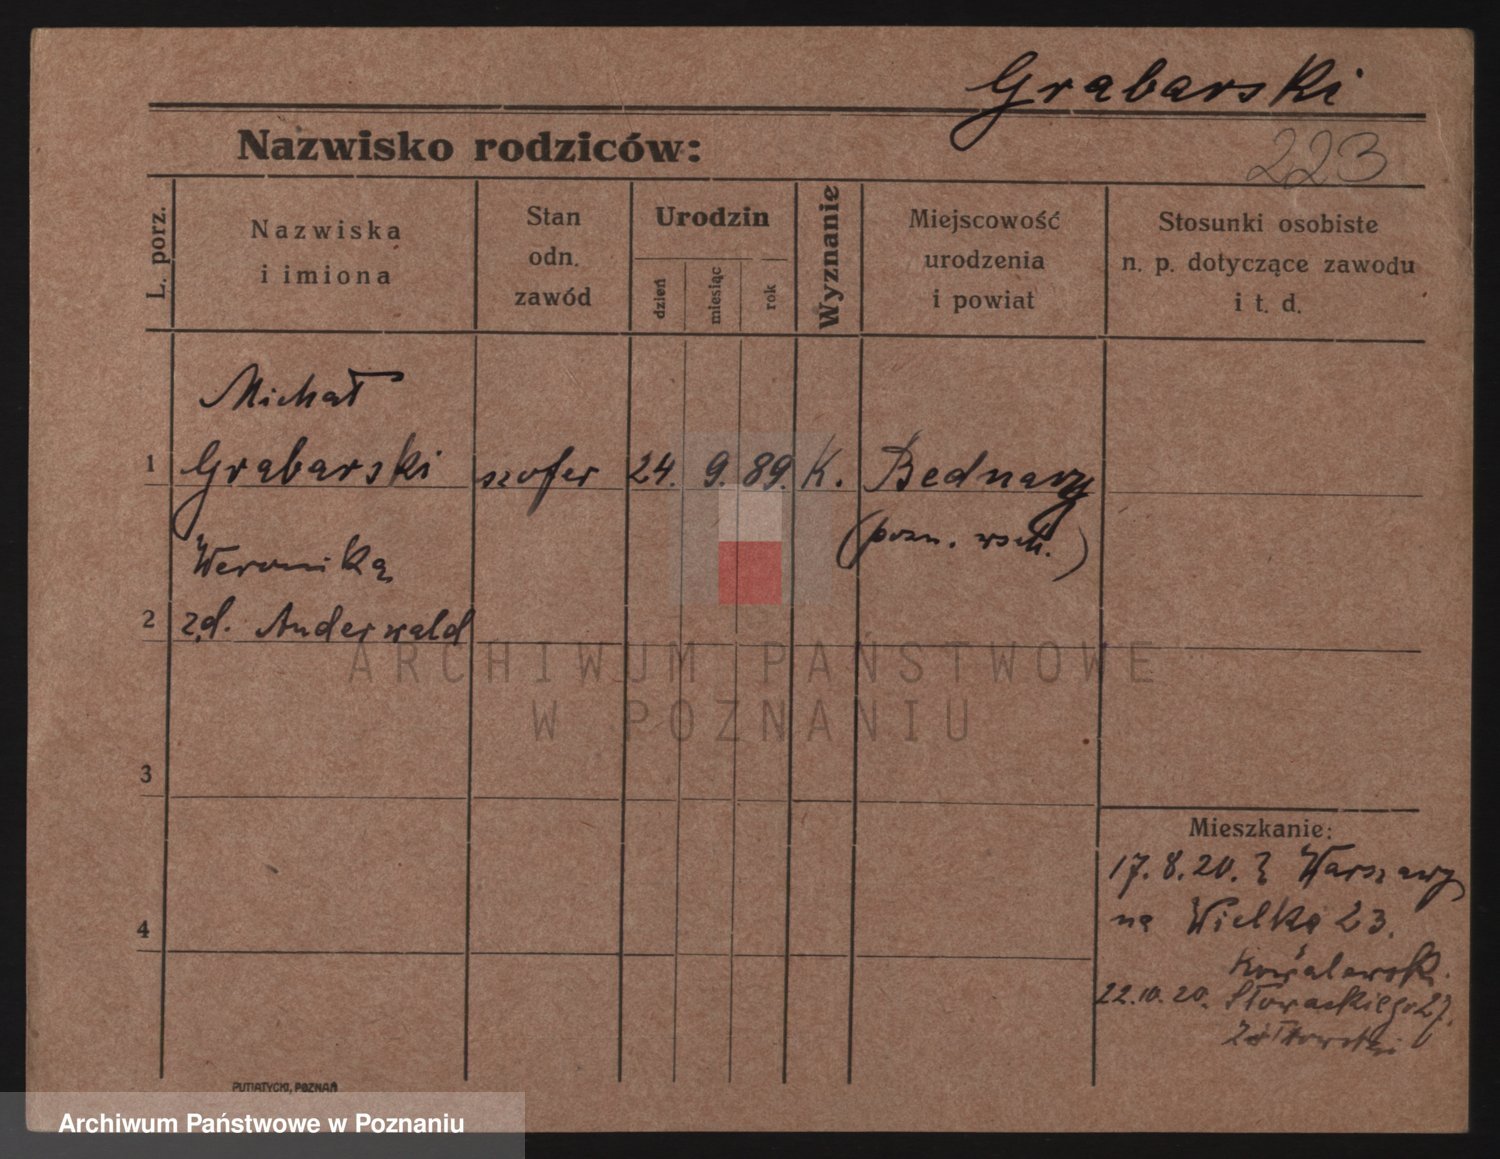 Grabarski
Nazwisko rodziców:
223
L. porz.
Nazwiska
i imiona
Stan
odn.
zawód
Urodzin
dzień
miesiąc
rok
Wyznanie
Miejscowość
urodzenia
i powiat
Stosunki osobiste
n. p. dotyczące zawodu
i t. d.
Michał
1 Grabarski szofer 24. 9. 89. K. Bednary
(pozn. wsch.)
Weronika
2 zd. Anderwald
ARCHIWUM PAŃSTWOWE
W POZNANIU
3
Mieszkanie:
17.8.20. z Warszawy
na Wielką 23.
4
Kowalewsk.
22.10.20. Słowackiego 27.
Żółtowski
PUTIATYCKI, POZNAŃ
Archiwum Państwowe w Poznaniu